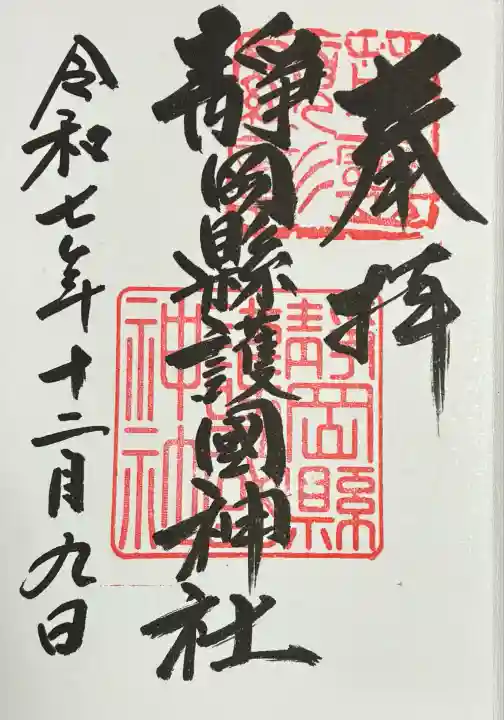 奉拝
靜岡縣護國神社
令和七年十二月九日
靜岡縣
護國
神社